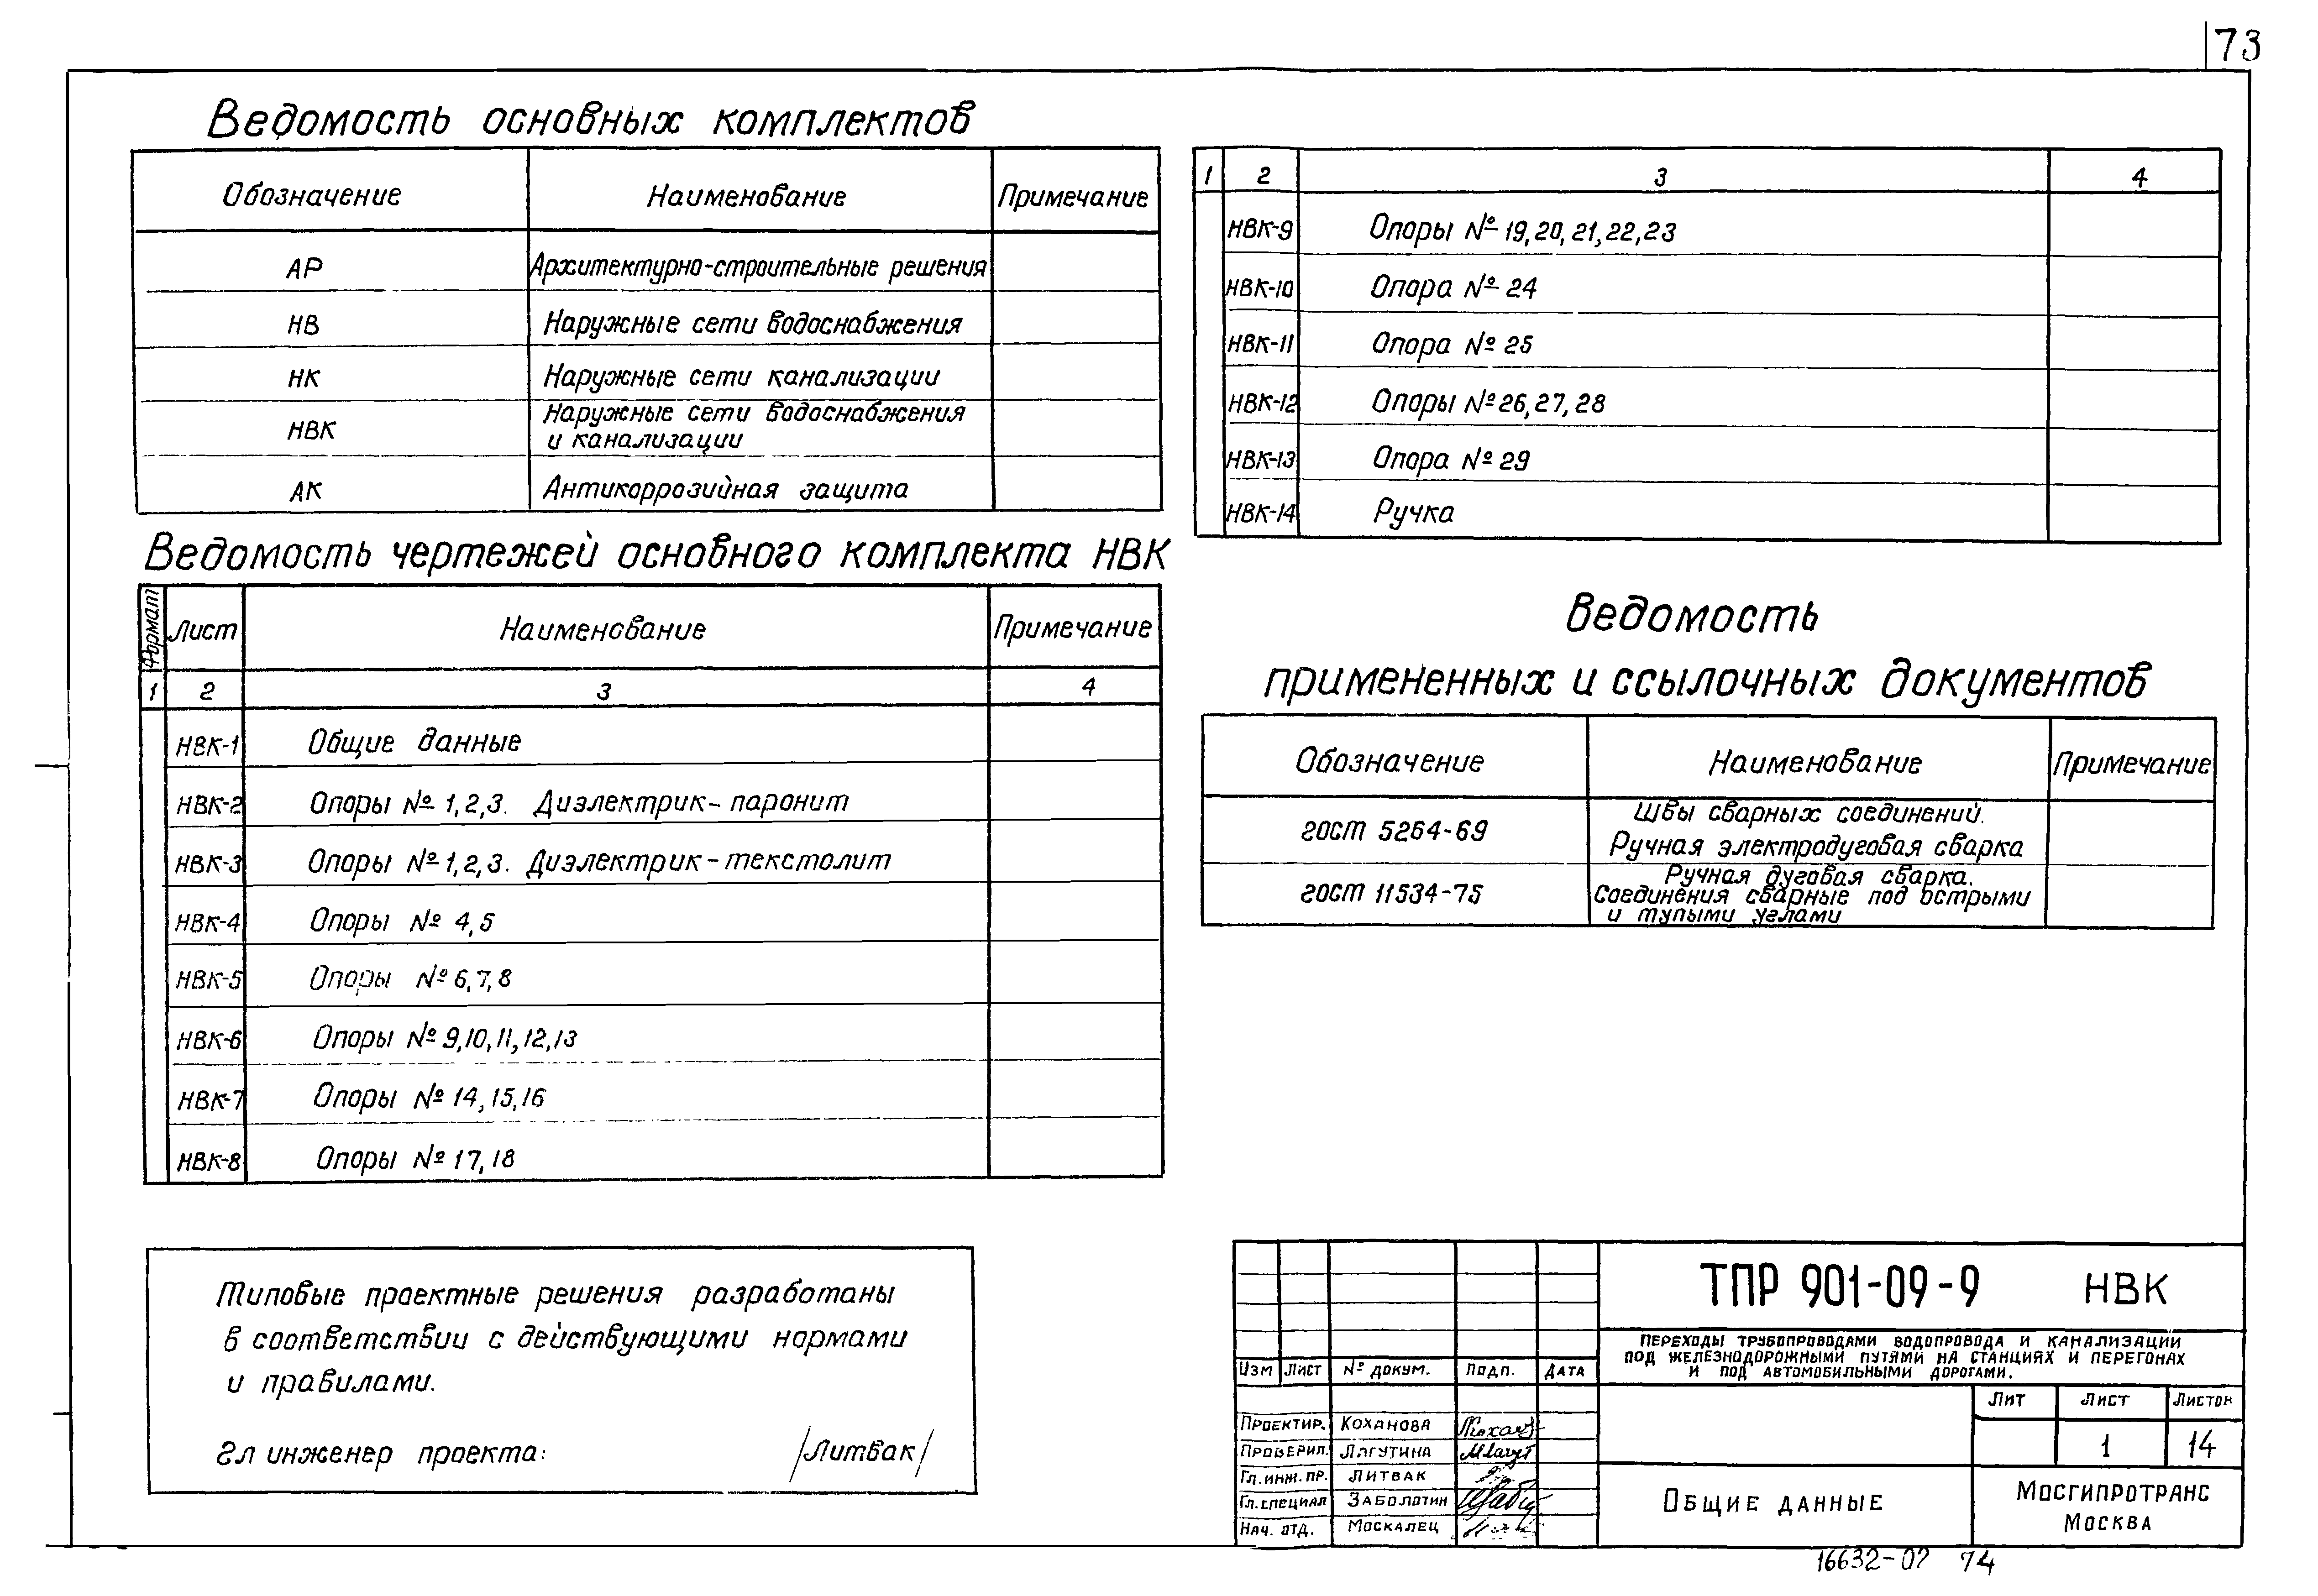 73
Ведомость основных комплектов
Обозначение Наименование Примечание
АР Архитектурно-строительные решения
НВ Наружные сети водоснабжения
НК Наружные сети канализации
НВК Наружные сети водоснабжения
и канализации
АК Антикоррозийная защита
Ведомость чертежей основного комплекта НВК
Формат Лист Наименование Примечание
1 2 3 4
НВК-1 Общие данные
НВК-2 Опоры № 1,2,3. Диэлектрик-паронит
НВК-3 Опоры № 1,2,3. Диэлектрик-текстолит
НВК-4 Опоры № 4,5
НВК-5 Опоры № 6,7,8
НВК-6 Опоры № 9,10,11,12,13
НВК-7 Опоры № 14,15,16
НВК-8 Опоры № 17,18
1 2 3 4
НВК-9 Опоры № 19,20,21,22,23
НВК-10 Опора № 24
НВК-11 Опора № 25
НВК-12 Опоры № 26,27,28
НВК-13 Опора № 29
НВК-14 Ручка
Ведомость
примененных и ссылочных документов
Обозначение Наименование Примечание
ГОСТ 5264-69 Швы сварных соединений.
Ручная электродуговая сварка
ГОСТ 11534-75 Ручная дуговая сварка.
Соединения сварные под острыми
и тупыми углами
Типовые проектные решения разработаны
в соответствии с действующими нормами
и правилами.
Гл инженер проекта: /Литвак/
ТПР 901-09-9 НВК
Переходы трубопроводами водопровода и канализации
под железнодорожными путями на станциях и перегонах
и под автомобильными дорогами.
Изм Лист № докум. Подп. Дата
Проектир. Коханова
Проверил. Лагутина
Гл.инж.пр. Литвак
Гл.специал Заболотин
Нач. отд. Москалец
Лит Лист Листов
1 14
Общие данные
Мосгипротранс
Москва
16632-02 74